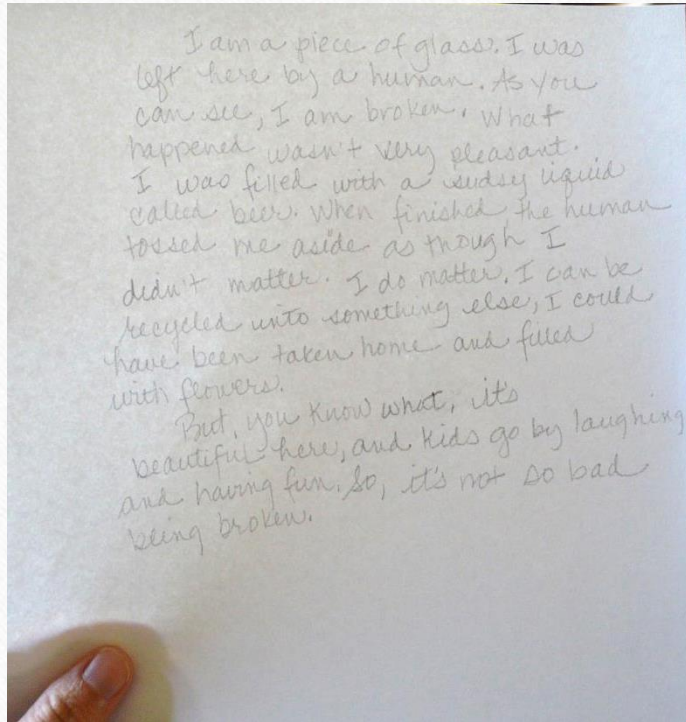 I am a piece of glass. I was
left here by a human. As you
can see, I am broken. What
happened wasn't very pleasant.
I was filled with a sudsy liquid
called beer. When finished the human
tossed me aside as though I
didn't matter. I do matter. I can be
recycled unto something else, I could
have been taken home and filled
with flowers.
But, you know what, it's
beautiful here, and kids go by laughing
and having fun. So, it's not so bad
being broken.